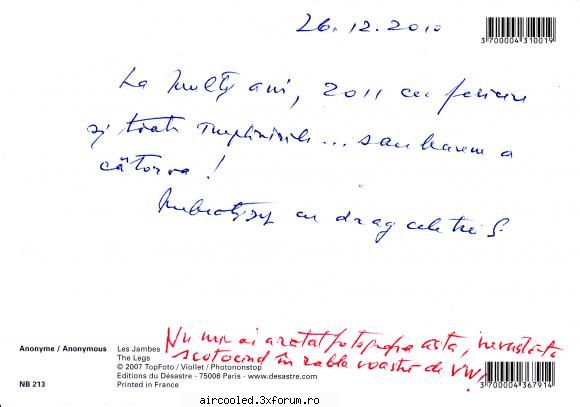 26.12.2010
3 700004 310019
La Mulți ani, 2011 cu fericire
și toate împlinirile... sau harem a
câtorva!
cu drag cele trei S.
Nu mi-ai arătat fotografia asta, nevastă-ta
scotocind în rabla voastră de VW!
Anonyme / Anonymous
Les Jambes
The Legs
© 2007 TopFoto / Viollet / Photononstop
Editions du Désastre - 75006 Paris - www.desastre.com
NB 213
Printed in France
3 700004 367914
aircooled.3xforum.ro